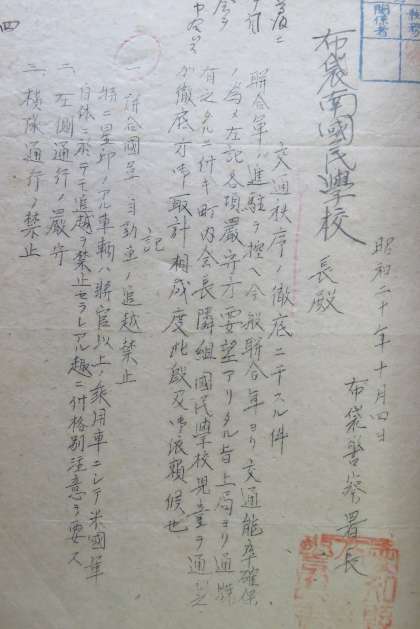 昭和二十年十月四日
布袋警察署長
布袋南國民學校
長殿
交通秩序ノ徹底ニ干スル件
聯合軍ノ進駐ヲ控ヘ今般聯合軍ヨリ交通能率確保
ノ為メ左記各項嚴守方要望アリタル旨上局ヨリ通牒
有之タルニ付キ町内会長隣組國民學校児童ヲ通シ
カ徹底方御取計相成度此段及御依頼候也
記
一 聯合國軍自動車ノ追越禁止
特ニ星印ノアル車輌ハ將官以上ノ乘用車ニシテ米國軍
自体ニ於テモ追越ヲ禁止セラレアル趣ニ付格別注意ヲ要ス
二 左側通行ノ嚴守
三 横隊通行ノ禁止
関係者
四